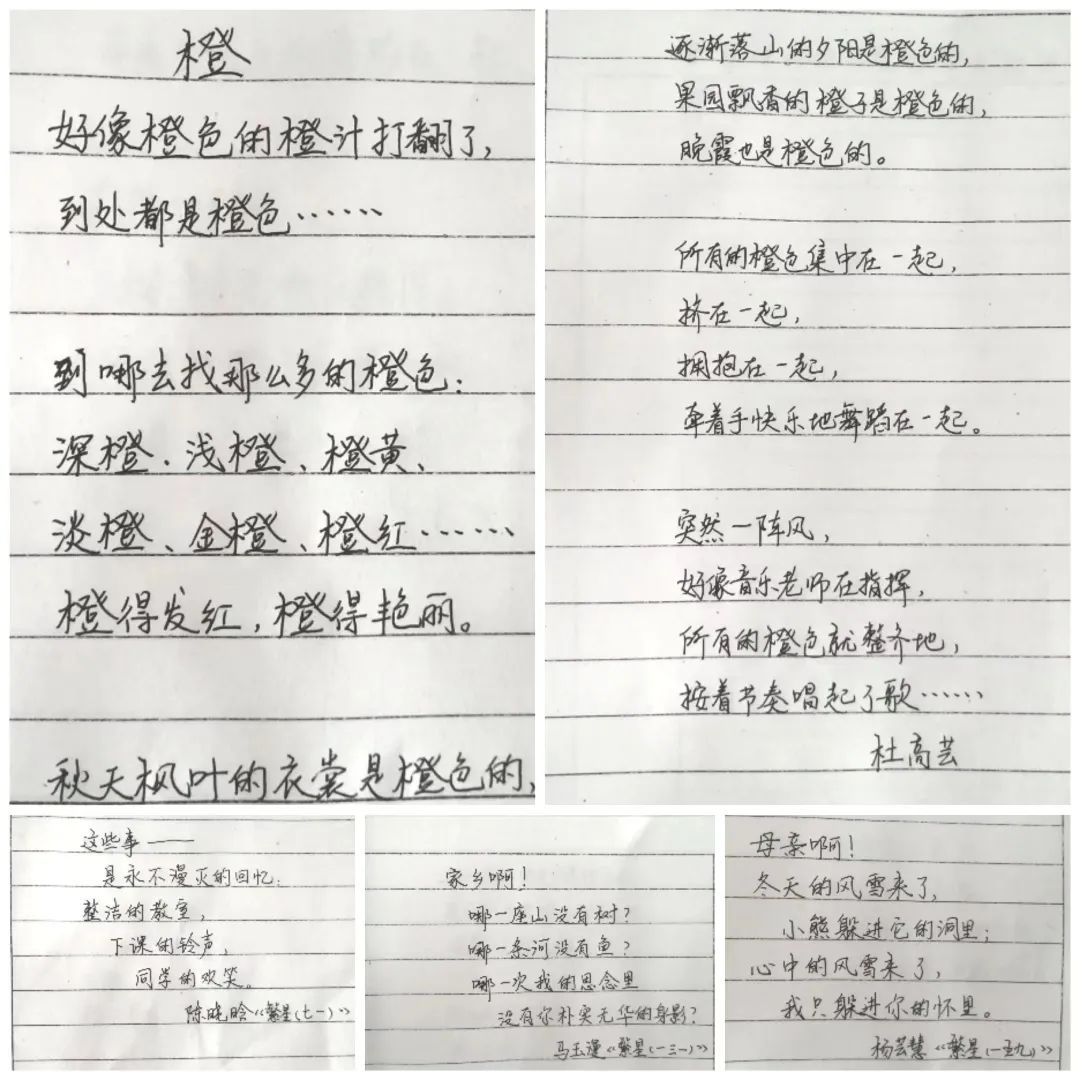 橙
好像橙色的橙汁打翻了,
到处都是橙色······
到哪去找那么多的橙色:
深橙、浅橙、橙黄、
淡橙、金橙、橙红······
橙得发红,橙得艳丽。
秋天枫叶的衣裳是橙色的,
逐渐落山的夕阳是橙色的,
果园飘香的橙子是橙色的,
晚霞也是橙色的。
所有的橙色集中在一起,
挤在一起,
拥抱在一起,
牵着手快乐地舞蹈在一起。
突然一阵风,
好像音乐老师在指挥,
所有的橙色就整齐地,
按着节奏唱起了歌······
杜高芸
这些事——
是永不漫灭的回忆:
整洁的教室,
下课的铃声,
同学的欢笑。
陈晓晗《繁星(七一)》
家乡啊!
哪一座山没有树?
哪一条河没有鱼?
哪一次我的思念里
没有你朴实无华的身影?
马玉漫《繁星(一三一)》
母亲啊!
冬天的风雪来了,
小熊躲进它的洞里;
心中的风雪来了,
我只躲进你的怀里。
杨芸慧《繁星(一五九)》